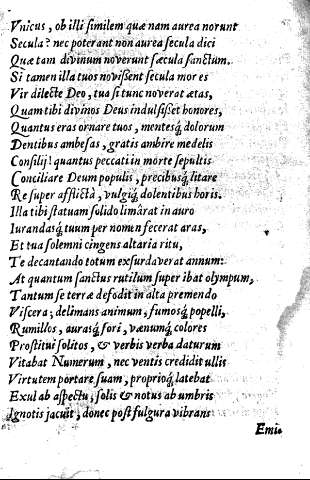 Vnicus, ob illi similem quæ nam aurea norunt
Secula? nec poterant non aurea secula dici
Quæ tam divinum noverunt sæcula sanctum.
Si tamen illa tuos novissent secula mores
Vir dilecte Deo, tua si tunc noverat ætas,
Quam tibi divinos Deus indulsisset honores,
Quantus eras ornare tuos, mentesq́ dolorum
Dentibus ambesas, gratis ambire medelis
Consilij! quantus peccati in morte sepultis
Conciliare Deum populis, precibusq́ litare
Re super afflictâ, vulgiq́ dolentibus horis.
Illa tibi statuam solido limârat in auro
Iurandasq́ tuum per nomen fecerat aras,
Et tua solemni cingens altaria ritu,
Te decantando totum exsurdaverat annum:
At quantum sanctus rutilum super ibat olympum,
Tantum se terræ defodit in alta premendo
Viscera; delimans animum, fumosq́ popelli,
Rumillos, aurasq́ fori, vænumq́ colores
Prostitui solitos, & verbis verba daturum
Vitabat Numerum, nec ventis credidit ullis
Virtutem portare suam, proprioq́ latebat
Exul ab aspectu, solis & notus ab umbris
Ignotis jacuit, donec post fulgura vibrans
Emi-